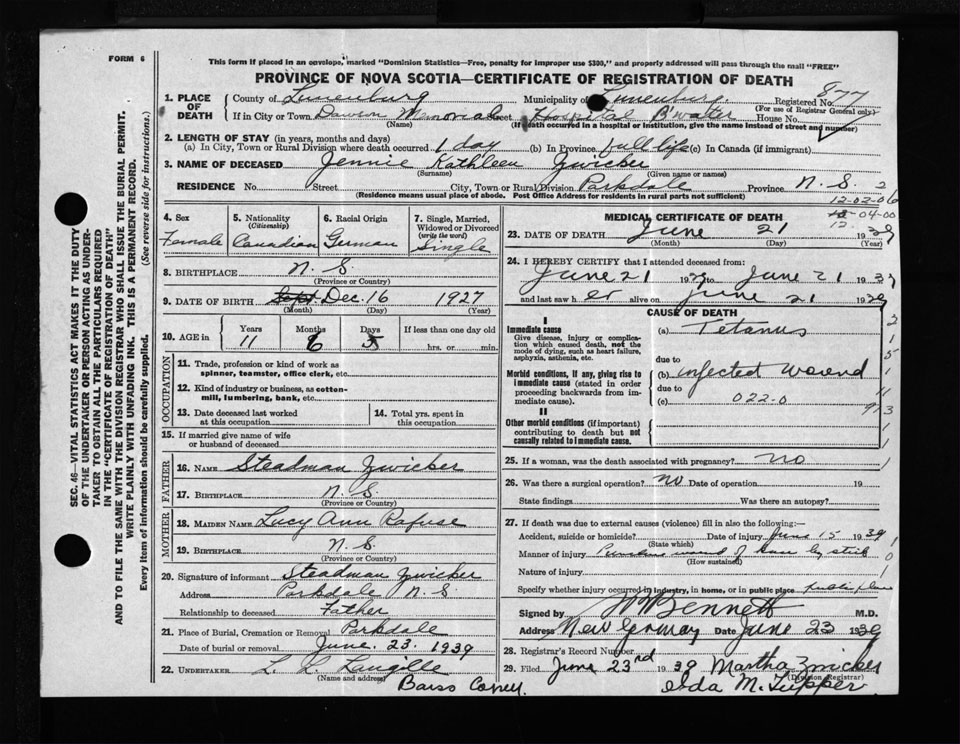 FORM 6
This form if placed in an envelope, marked "Dominion Statistics—Free, penalty for improper use $300," and properly addressed will pass through the mail "FREE"
PROVINCE OF NOVA SCOTIA—CERTIFICATE OF REGISTRATION OF DEATH
877
1. PLACE OF DEATH County of Lunenburg Municipality of Lunenburg Registered No.
(For use of Registrar General only)
If in City or Town Dawson Memorial Street Hospital B'water House No.
(Name) (If death occurred in a hospital or institution, give the name instead of street and number)
2. LENGTH OF STAY (in years, months and days)
(a) In City, Town or Rural Division where death occurred 1 day (b) In Province full life (c) In Canada (if immigrant)
3. NAME OF DECEASED Jennie Kathleen Zwicker
(Surname) (Given name or names)
RESIDENCE No. Street City, Town or Rural Division Parkdale Province N. S.
(Residence means usual place of abode. Post Office Address for residents in rural parts not sufficient)
2
12-02-06
04-00
12
4. Sex
Female
5. Nationality (Citizenship)
Canadian
6. Racial Origin
German
7. Single, Married, Widowed or Divorced (write the word)
Single
8. BIRTHPLACE N. S.
(Province or Country)
9. DATE OF BIRTH Sept Dec. 16 1927
(Month) (Day) (Year)
10. AGE in Years Months Days If less than one day old
11 6 5 hrs. or min.
OCCUPATION
11. Trade, profession or kind of work as spinner, teamster, office clerk, etc.
12. Kind of industry or business, as cotton-mill, lumbering, bank, etc.
13. Date deceased last worked at this occupation
14. Total yrs. spent in this occupation
15. If married give name of wife or husband of deceased
FATHER
16. NAME Steadman Zwicker
17. BIRTHPLACE N. S.
(Province or Country)
MOTHER
18. MAIDEN NAME Lucy Ann Rafuse
19. BIRTHPLACE N. S.
(Province or Country)
20. Signature of informant Steadman Zwicker
Address Parkdale N. S.
Relationship to deceased Father
21. Place of Burial, Cremation or Removal Parkdale
Date of burial or removal June 23. 1939
22. UNDERTAKER L. L. Langille
(Name and address)
Barss Corner
MEDICAL CERTIFICATE OF DEATH
23. DATE OF DEATH June 21 1939
(Month) (Day) (Year)
24. I HEREBY CERTIFY that I attended deceased from:
June 21 1939 to June 21 1939
and last saw her alive on June 21 1939
CAUSE OF DEATH
I
Immediate cause
Give disease, injury or complication which caused death, not the mode of dying, such as heart failure, asphyxia, asthenia, etc.
(a) Tetanus
due to
Morbid conditions, if any, giving rise to immediate cause (stated in order proceeding backwards from immediate cause).
(b) infected wound
due to
(c) 022-0
II
Other morbid conditions (if important) contributing to death but not causally related to immediate cause.
25. If a woman, was the death associated with pregnancy? no
26. Was there a surgical operation? no Date of operation 19
State findings Was there an autopsy?
27. If death was due to external causes (violence) fill in also the following:—
Accident, suicide or homicide? Date of injury June 15 1939
(State which)
Manner of injury Puncture wound of knee by stick
(How sustained)
Nature of injury
Specify whether injury occurred in industry, in home, or in public place public place
Signed by Bennett M.D.
Address New Germany Date June 23 1939
28. Registrar's Record Number
29. Filed June 23rd 1939 Martha Zwicker
(Division Registrar)
Ida M. Tupper
SEC. 46—VITAL STATISTICS ACT MAKES IT THE DUTY
OF THE UNDERTAKER OR PERSON ACTING AS UNDER-
TAKER TO OBTAIN ALL THE PARTICULARS REQUIRED
IN THE "CERTIFICATE OF REGISTRATION OF DEATH"
AND TO FILE THE SAME WITH THE DIVISION REGISTRAR WHO SHALL ISSUE THE BURIAL PERMIT.
WRITE PLAINLY WITH UNFADING INK. THIS IS A PERMANENT RECORD.
Every item of information should be carefully supplied. (See reverse side for instructions.)